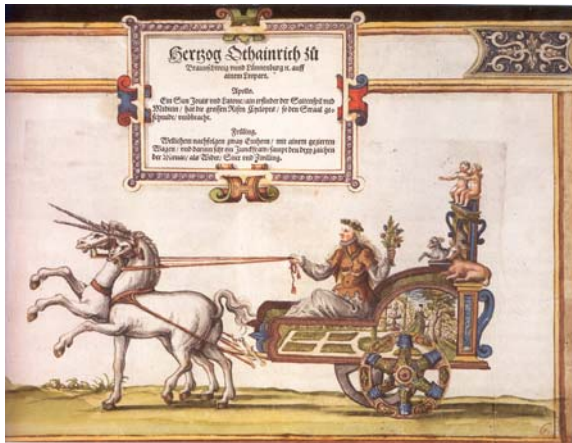 Hertzog Othainrich zů
Braunschweig vnnd Lünnenburg ꝛc. auff
ainem Leopart.
Apollo.
Ein Sun Jouis vnd Latone: ain erfinder der Saitenspil vnd
Medicin / hat die grossen Risen Cyclopes / so den Straal ge-
schmidt / vmbbracht.
Früling.
Wellichem nachfolgen zway Einhorn / mit ainem gezierten
Wagen / vnd darinn sitzt ain Junckfraw / sampt den drey zaichen
der Monat / als Wider / Stier vnd Zwilling.